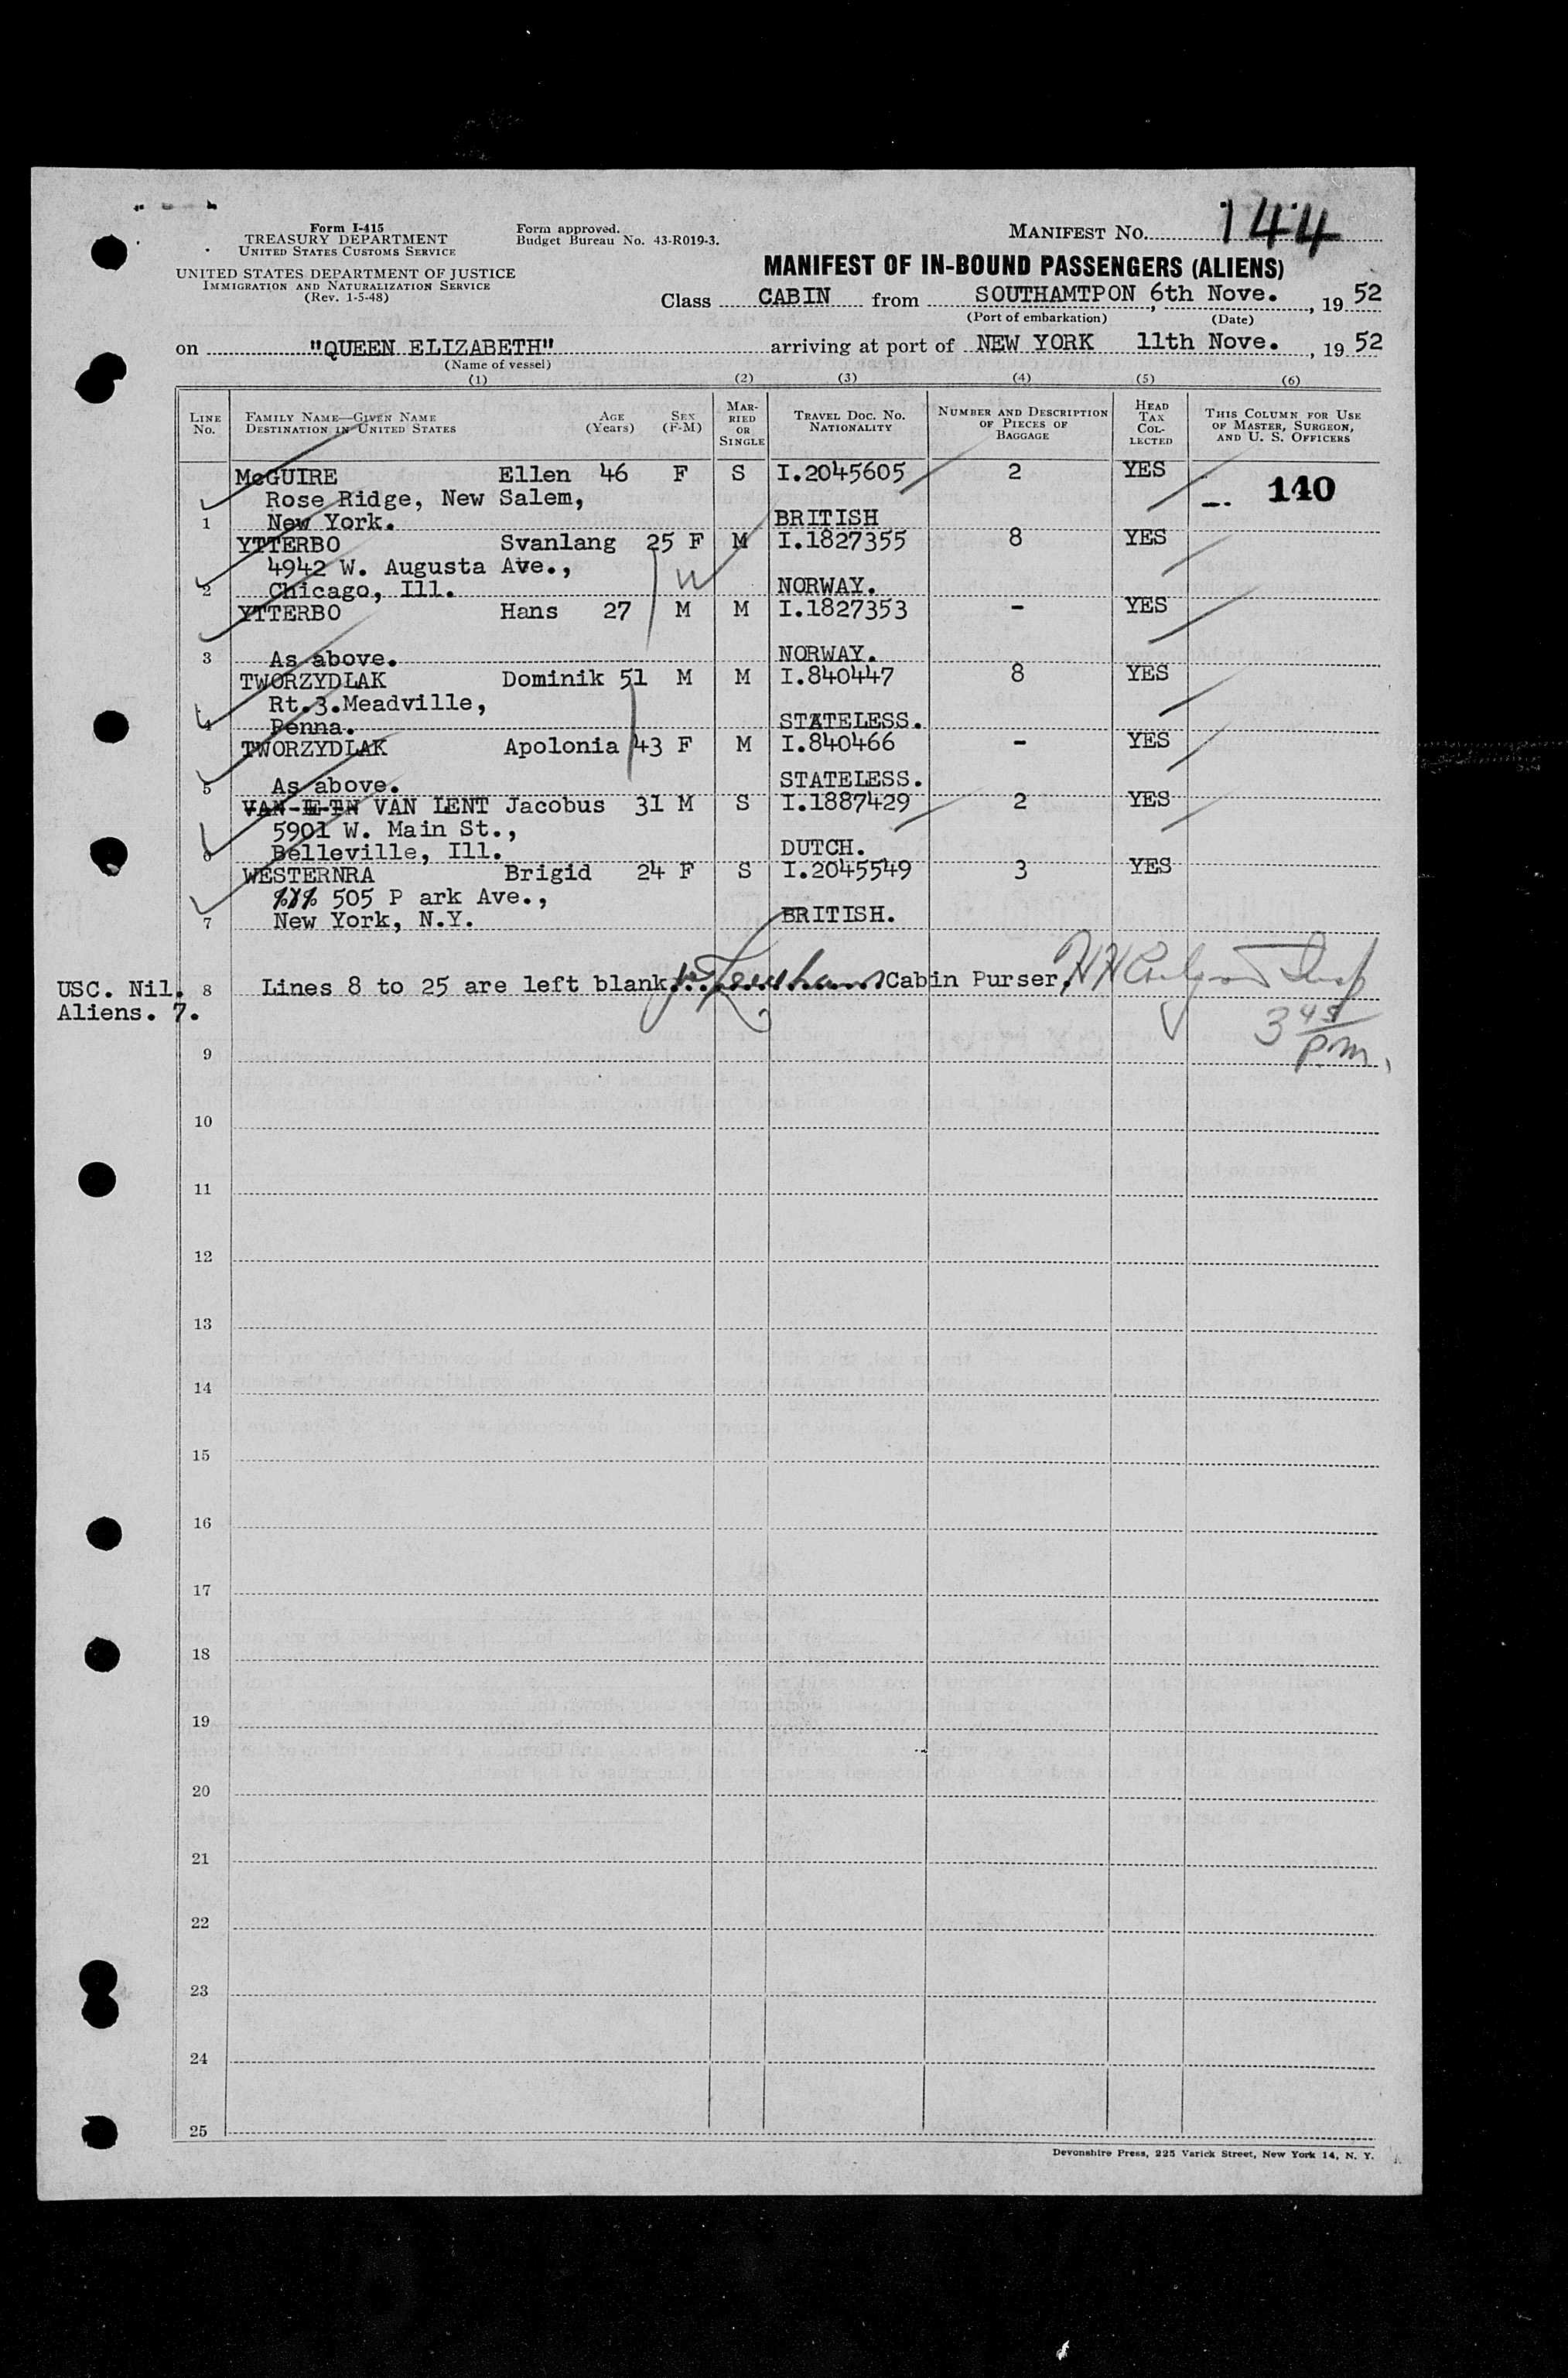 144
Form I-415
TREASURY DEPARTMENT
UNITED STATES CUSTOMS SERVICE
Form approved.
Budget Bureau No. 43-R019-3.
MANIFEST NO.
UNITED STATES DEPARTMENT OF JUSTICE
IMMIGRATION AND NATURALIZATION SERVICE
(Rev. 1-5-48)
MANIFEST OF IN-BOUND PASSENGERS (ALIENS)
Class CABIN from SOUTHAMTPON, 6th Nove., 19 52
(Port of embarkation) (Date)
on "QUEEN ELIZABETH" arriving at port of NEW YORK 11th Nove., 19 52
(Name of vessel)
(1) (2) (3) (4) (5) (6)
LINE No. FAMILY NAME—GIVEN NAME DESTINATION IN UNITED STATES AGE (Years) SEX (F-M) MARRIED OR SINGLE TRAVEL DOC. NO. NATIONALITY NUMBER AND DESCRIPTION OF PIECES OF BAGGAGE HEAD TAX COLLECTED THIS COLUMN FOR USE OF MASTER, SURGEON, AND U. S. OFFICERS
McGUIRE Ellen 46 F S I.2045605 2 YES 140
Rose Ridge, New Salem,
1 New York. BRITISH
YTTERBO Svanlang 25 F M I.1827355 8 YES
4942 W. Augusta Ave.,
2 Chicago, Ill. NORWAY.
YTTERBO Hans 27 M M I.1827353 - YES
3 As above. NORWAY.
TWORZYDLAK Dominik 51 M M I.840447 8 YES
Rt.3.Meadville,
4 Penna. STATELESS.
TWORZYDLAK Apolonia 43 F M I.840466 - YES
5 As above. STATELESS.
VAN LENT Jacobus 31 M S I.1887429 2 YES
5901 W. Main St.,
6 Belleville, Ill. DUTCH.
WESTERNRA Brigid 24 F S I.2045549 3 YES
505 P ark Ave.,
7 New York, N.Y. BRITISH.
USC. Nil. 8 Lines 8 to 25 are left blank. Cabin Purser.
Aliens. 7.
3 45 p.m.
9
10
11
12
13
14
15
16
17
18
19
20
21
22
23
24
25
Devonshire Press, 225 Varick Street, New York 14, N. Y.